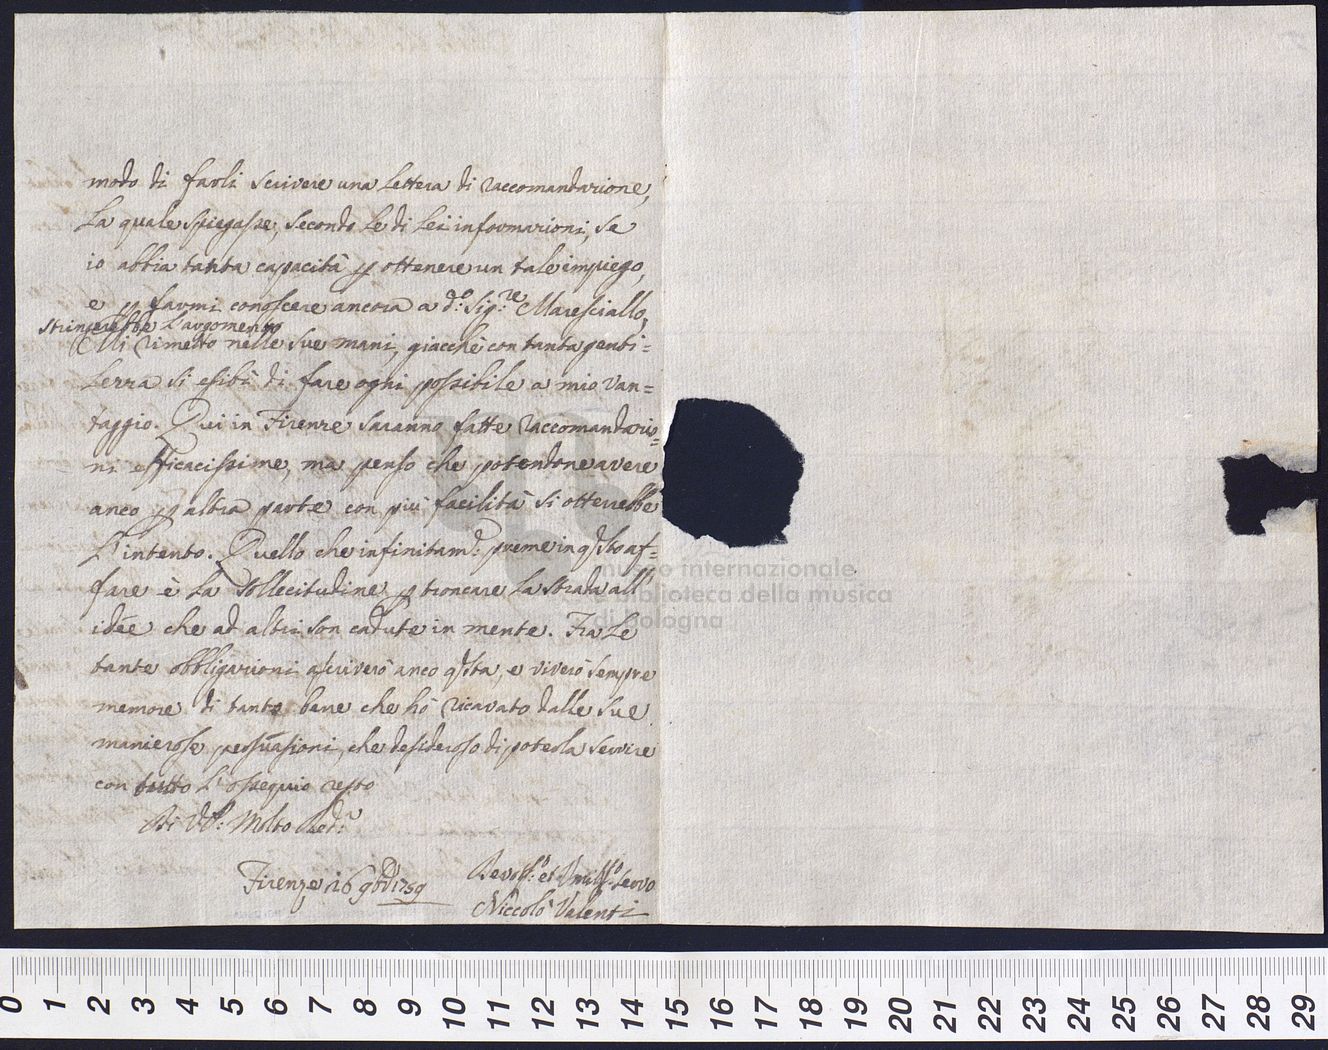 modo di farli scrivere una Lettera di raccomandazione,
La quale spiegasse, secondo Le di Lei informazioni, se
io abbia tanta capacità p ottenere un tale impiego,
e p farmi conoscere ancora a d.º Sig.re Maresciallo,
strincerebbe L'argomento
Mi rimetto nelle sue mani, giacchè con tanta genti=
Lezza si esibì di fare ogni possibile a mio van=
taggio. Qui in Firenze saranno fatte raccomandazio=
ni efficacissime, ma penso che potendone avere
anco p altra parte con più facilità si otterrebbe
L'intento. Quello che infinitam.e preme in qsto af=
fare è La sollecitudine p troncare La strada all'
idée che ad altri son cadute in mente. Fra Le
tante obbligazioni ascriverò anco qsta, e viverò sempre
memore di tante bene che hò ricavato dalle sue
manierose persuasioni, che desideroso di poterla servire
con tutto L'ossequio resto
Di V.P. Molto Red.a
Firenze 16 9bre 1759
Devot.º et Umill.º Servo
Niccolò Valenti
museo internazionale
e biblioteca della musica
di bologna
0 1 2 3 4 5 6 7 8 9 10 11 12 13 14 15 16 17 18 19 20 21 22 23 24 25 26 27 28 29